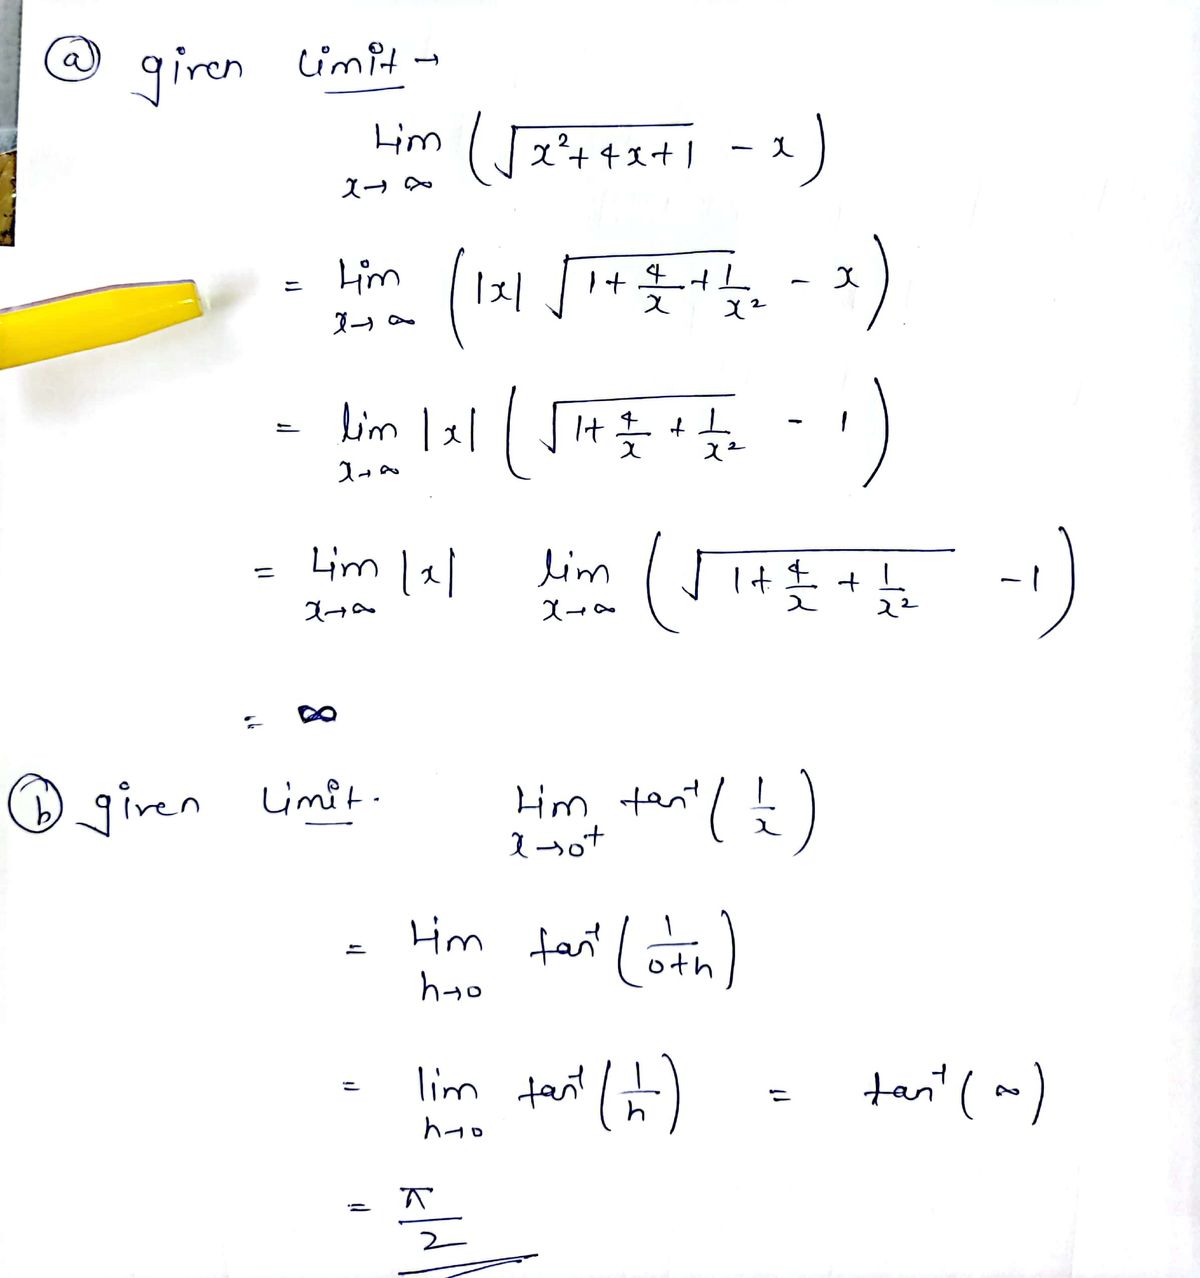 (a) given Limit →
Lim x→∞ (√(x²+4x+1) - x)
= Lim x→∞ (|x| √(1+4/x+1/x²) - x)
= lim x→∞ |x| (√(1+4/x+1/x²) - 1)
= Lim x→∞ |x| lim x→∞ (√(1+4/x+1/x²) -1)
= ∞
(b) given Limit. Lim x→0⁺ tan⁻¹(1/x)
= Lim h→0 tan⁻¹(1/(0+h))
= lim h→0 tan⁻¹(1/h) = tan⁻¹(∞)
= π/2